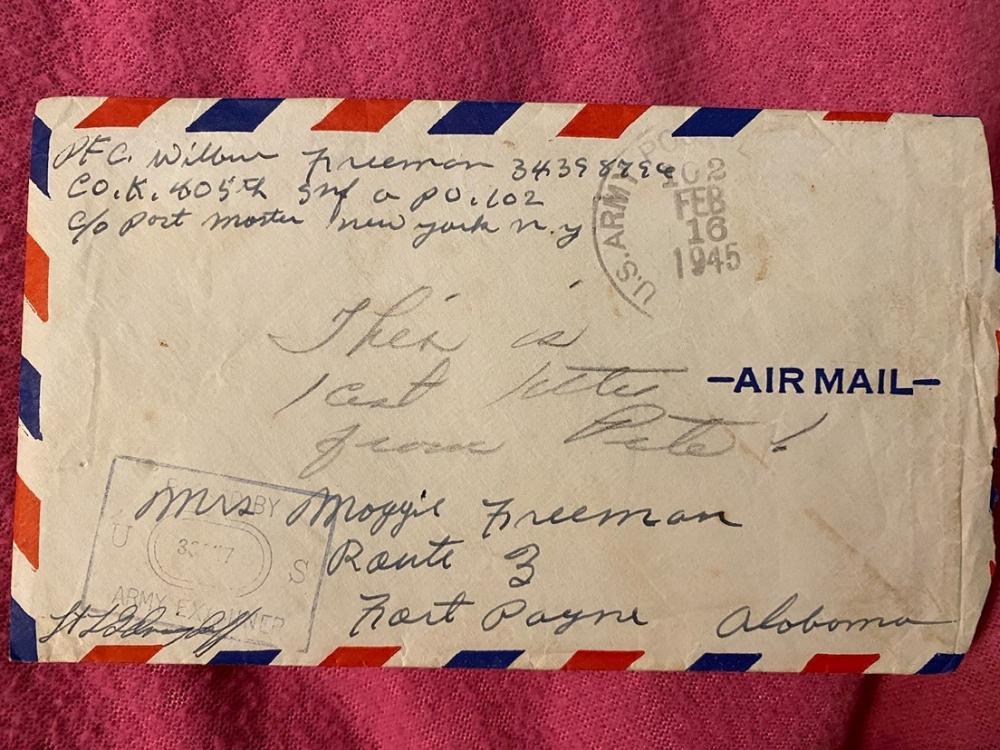 PFC. Wilbur Freeman
CO. K. 405th Inf a PO. 102
c/o Post Master new york n.y
U.S. ARMY
102
FEB
16
1945
This is
last letter
from Pete!
-AIR MAIL-
BY
U S
ARMY EXAMINER
Mrs Maggie Freeman
Route 3
Fort Payne Alabama